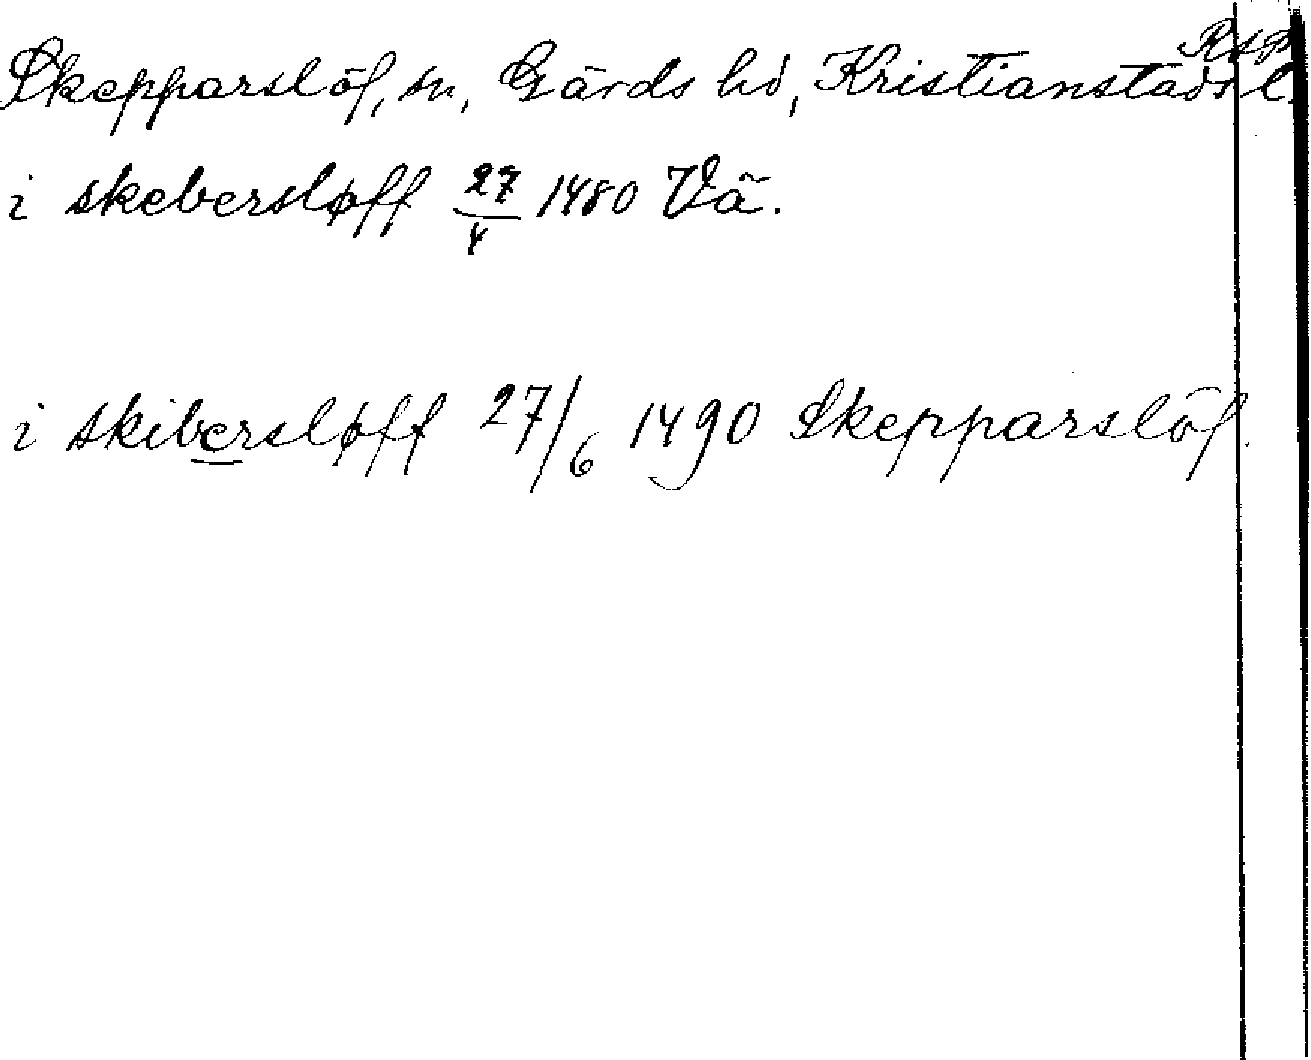 RAP
Skepparslöf, sn, Gärds hd, Kristianstads l.
i skebersløff 27/4 1480 Vä.
i skibersløff 27/6 1490 Skepparslöf.